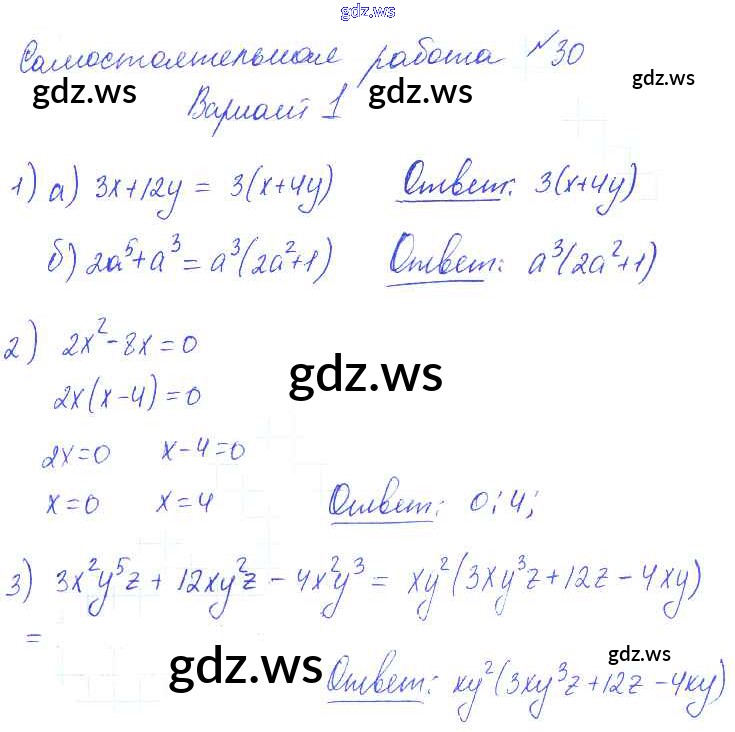 gdz.ws
Самостоятельная работа №30
gdz.ws
gdz.ws gdz.ws
Вариант 1
1) а) 3x+12y = 3(x+4y) Ответ: 3(x+4y)
б) 2a⁵+a³ = a³(2a²+1) Ответ: a³(2a²+1)
2) 2x²-8x=0
gdz.ws
2x(x-4)=0
2x=0 x-4=0
x=0 x=4 Ответ: 0; 4;
3) 3x²y⁵z + 12xy²z - 4x²y³ = xy²(3xy³z+12z-4xy)
=
gdz.ws gdz.ws
Ответ: xy²(3xy³z+12z-4xy)